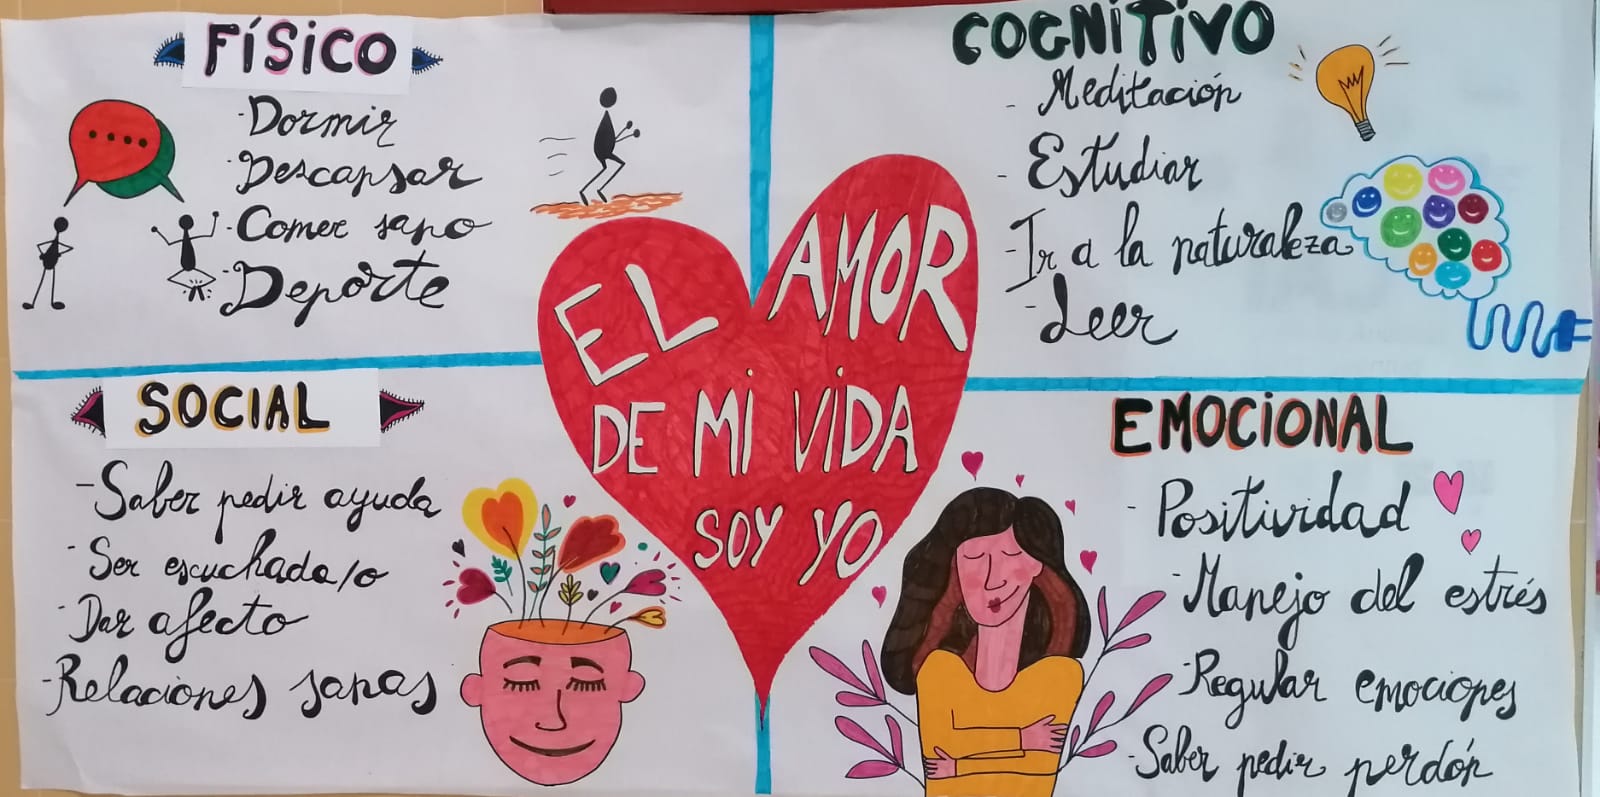 FÍSICO
- Dormir
- Descansar
- Comer sano
- Deporte
COGNITIVO
- Meditación
- Estudiar
- Ir a la naturaleza
- Leer
EL AMOR
DE MI VIDA
SOY YO
SOCIAL
- Saber pedir ayuda
- Ser escuchada/o
- Dar afecto
- Relaciones sanas
EMOCIONAL
- Positividad
- Manejo del estrés
- Regular emociones
- Saber pedir perdón